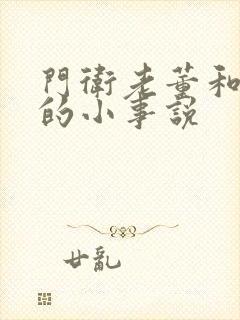 門衛老董和
的小事說
廿亂